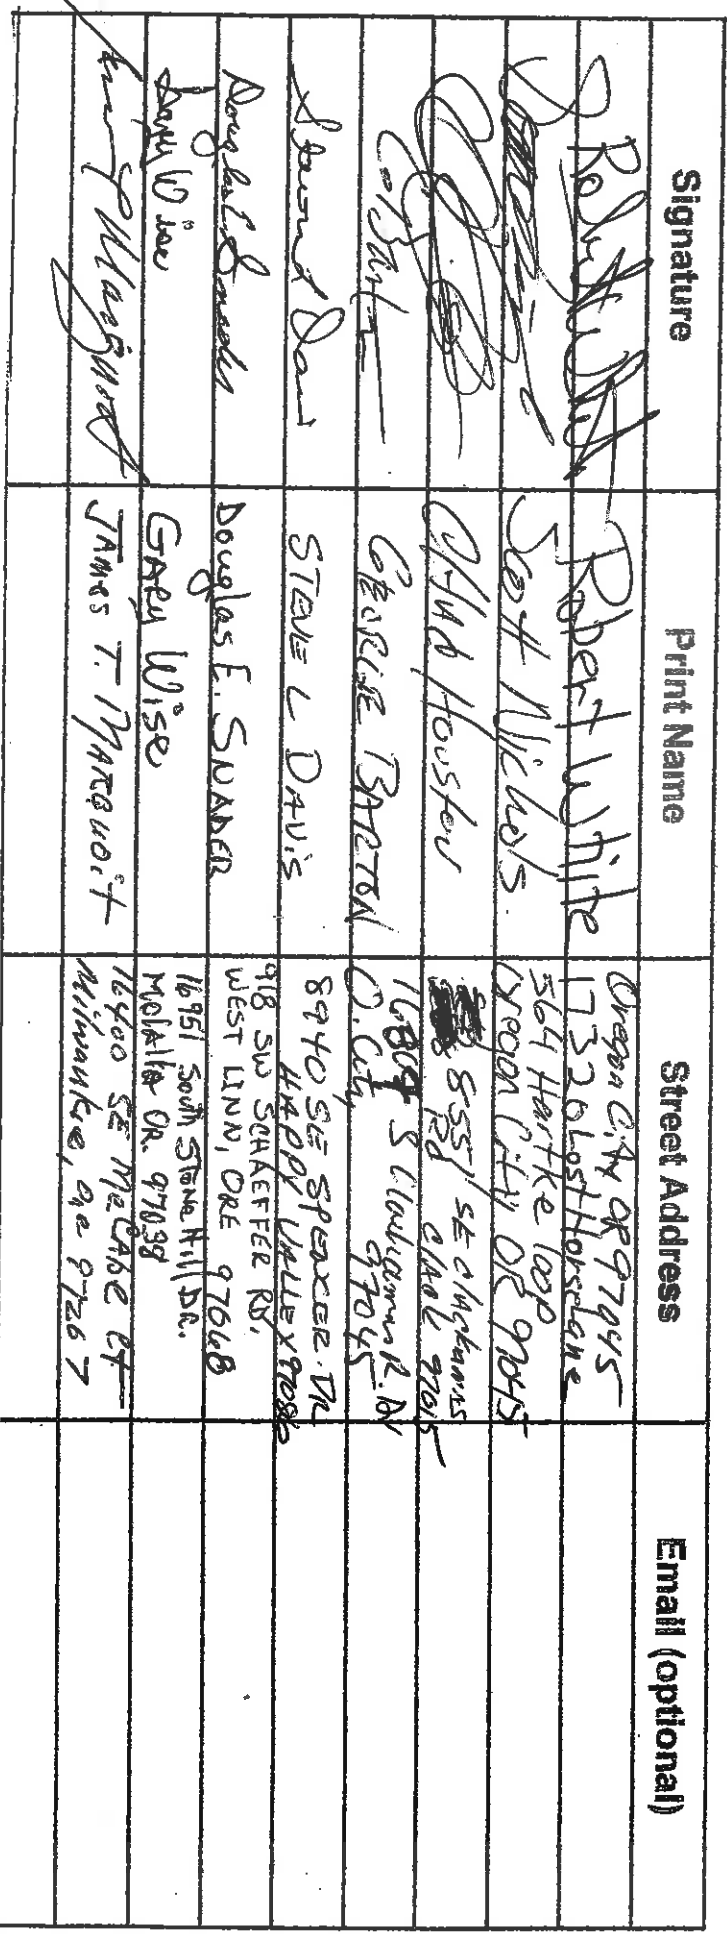 Signature Print Name Street Address Email (optional)
Robert White Robert White Oregon City OR 97045
17326 Lost Horse Lane
Scott Nichols 564 Hartke loop
Oregon City OR 97045
Chad Houston 8551 SE Clackamas
Rd Clack 97015
George Barton GEORGE BARTON S Clackamas R. Dr
O. City 97045
STEVE L DAVIS 8940 SE SPENCER DR
HAPPY VALLEY 97086
Douglas E. Snader Douglas E. SNADER 918 SW SCHAEFFER RD.
WEST LINN, ORE 97068
Gary Wise GARY Wise 16951 South Stone Hill DR.
Molalla OR. 97038
JAMES T. MARQUOIT 16400 SE McCABE CT
Milwaukie, Ore 97267